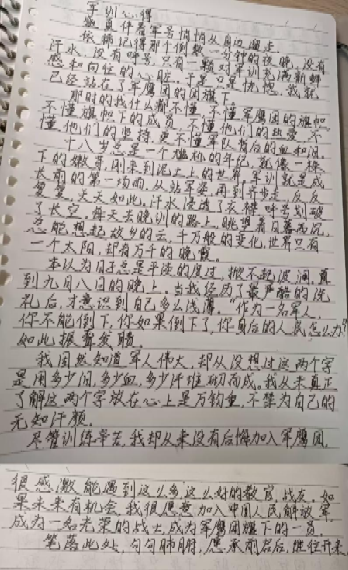 军训心得
敬意伴着军号悄悄从自边溜走
依稀记得那个倒数一分钟的夜晚，没有
汗水，没有呼号，只有一颗对军训充满新鲜
感和向往的心脏。于是，口呈恍惚，我就
已经站在了军鹰团的团旗下
那时的我什么都不懂，不懂军鹰团的旗帜
不懂旗帜下的成员，不懂他们的热爱，不
懂他们的坚持，更不懂军队背后的血和泪。
十八岁总是一个尴尬的年纪，就像一株
下的嫩芽，刚来到泥土上的世界，军训就是成
长前的第一场雨，从站军姿，周到齐步走，反反
复复，天天如此，汗水浸透了衣襟，呼号划破
了长空，每天去晚训的路上，眺望着日暮西沉，
总能想起故乡的云，千万般的变化，世界只有
一个太阳，却有万千的晚霞。
本以为日子总是平淡的度过，掀不起波澜，直
到九月八日的晚上。当我经历了最严酷的洗
礼后，才意识到自己多么浅薄。“作为一名军人，
你不能倒下，你如果倒下了，你身后的人民怎么办？”
如此振聋发聩。
我固然知道军人伟大，却从没想过这两个字
是用多少泪，多少血，多少汗堆砌而成。我从未真正
了解这两个字放在心上是万钧重，不禁为自己的
无知汗颜。
尽管训练辛苦，我却从来没有后悔加入军鹰团，
很感激能遇到这么多这么好的教官，战友。如
果未来有机会，我很愿意加入中国人民解放军，
成为一名光荣的战士，成为军鹰团旗下的一员。
笔落此处，句句肺腑，愿承前启后，继往开来。